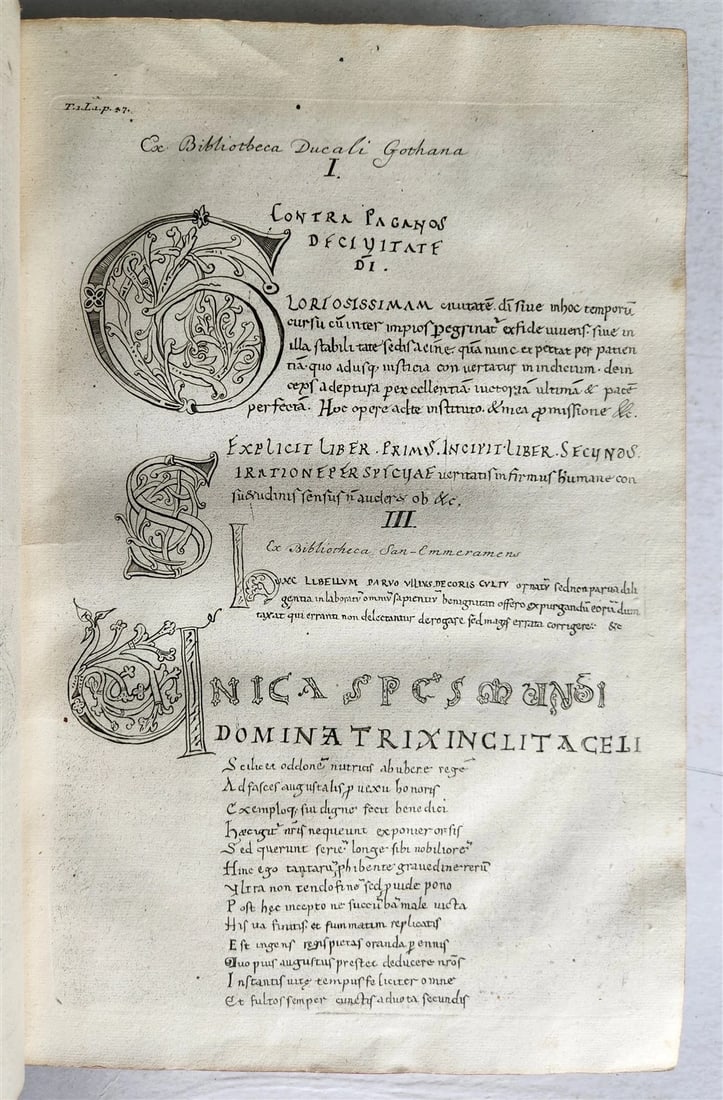 T.1.L.2.p.47.
Ex Bibliotheca Ducali Gothana
I.
CONTRA PAGANOS
DECIVITATE
DI.
GLORIOSISSIMAM ciuitatē. dī siue inhoc temporū
cursu cū inter impios peregrinat exfide uiuens siue in
illa stabilitate sedis quā nunc expectat per patien
tiā. quo adusq iusticia conuertatur inindicium. dein
ceps adeptura per excellentiā uictoriā ultimā & pacē
perfectā. Hoc opere adte instituto. & mea pmissione &c.
EXPLICIT LIBER. PRIMS. INCIPIT. LIBER. SECVNDS.
SIRATIONE PERSPICVAE ueritatis infirmus humane con
suetudinis sensus n auderet ob &c.
III.
Ex Bibliotheca San-Emmeramens
hunc LIBELLVM PARVO VILIVS DECORIS CVLTV ornatū sednon parua dili
gentia inlaboratū omniū sapientiū benignitati offero expurgandū eorū dum
taxat qui erranti non delectantur derogare sed magis errata corrigere: &c
VNICA SPES MUNDI
DOMINATRIXINCLITACELI
Scilicet oddonē nutrias abubere regē
Adfasces augustalis puexit honoris
Exemploq sui digne fecit benedici
Hec igit nris nequeunt exponier orsis
Sed querunt seriē longe sibi nobiliorē
Hinc ego tantarū phibente grauedine rerū
Vltra non tendo finē sed puide pono
Post hec incepto ne succūbā male uicta
His ita finitis et summatim replicatis
Est ingens regis pietas oranda pennis
Quo pius augustus prestet deducere nros
Instantis uitę tempus feliciter omne
Et fultos semper cunctis aduota secundis